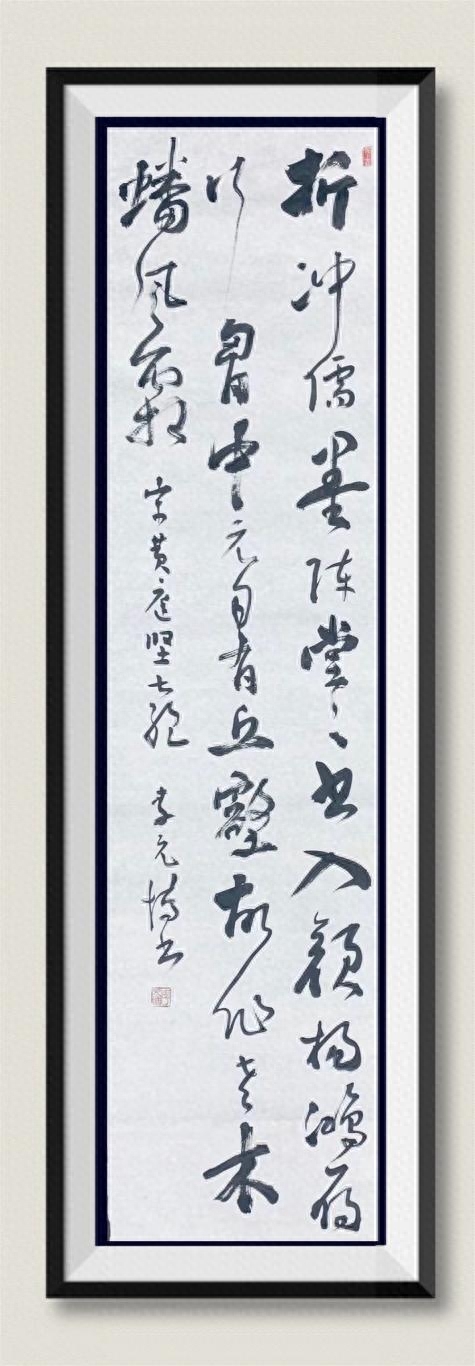 折冲儒墨阵堂〻书入颜杨鸿雁
行胷中元自有丘壑故作老木
蟠风霜 宋黄庭坚七绝 李元博书